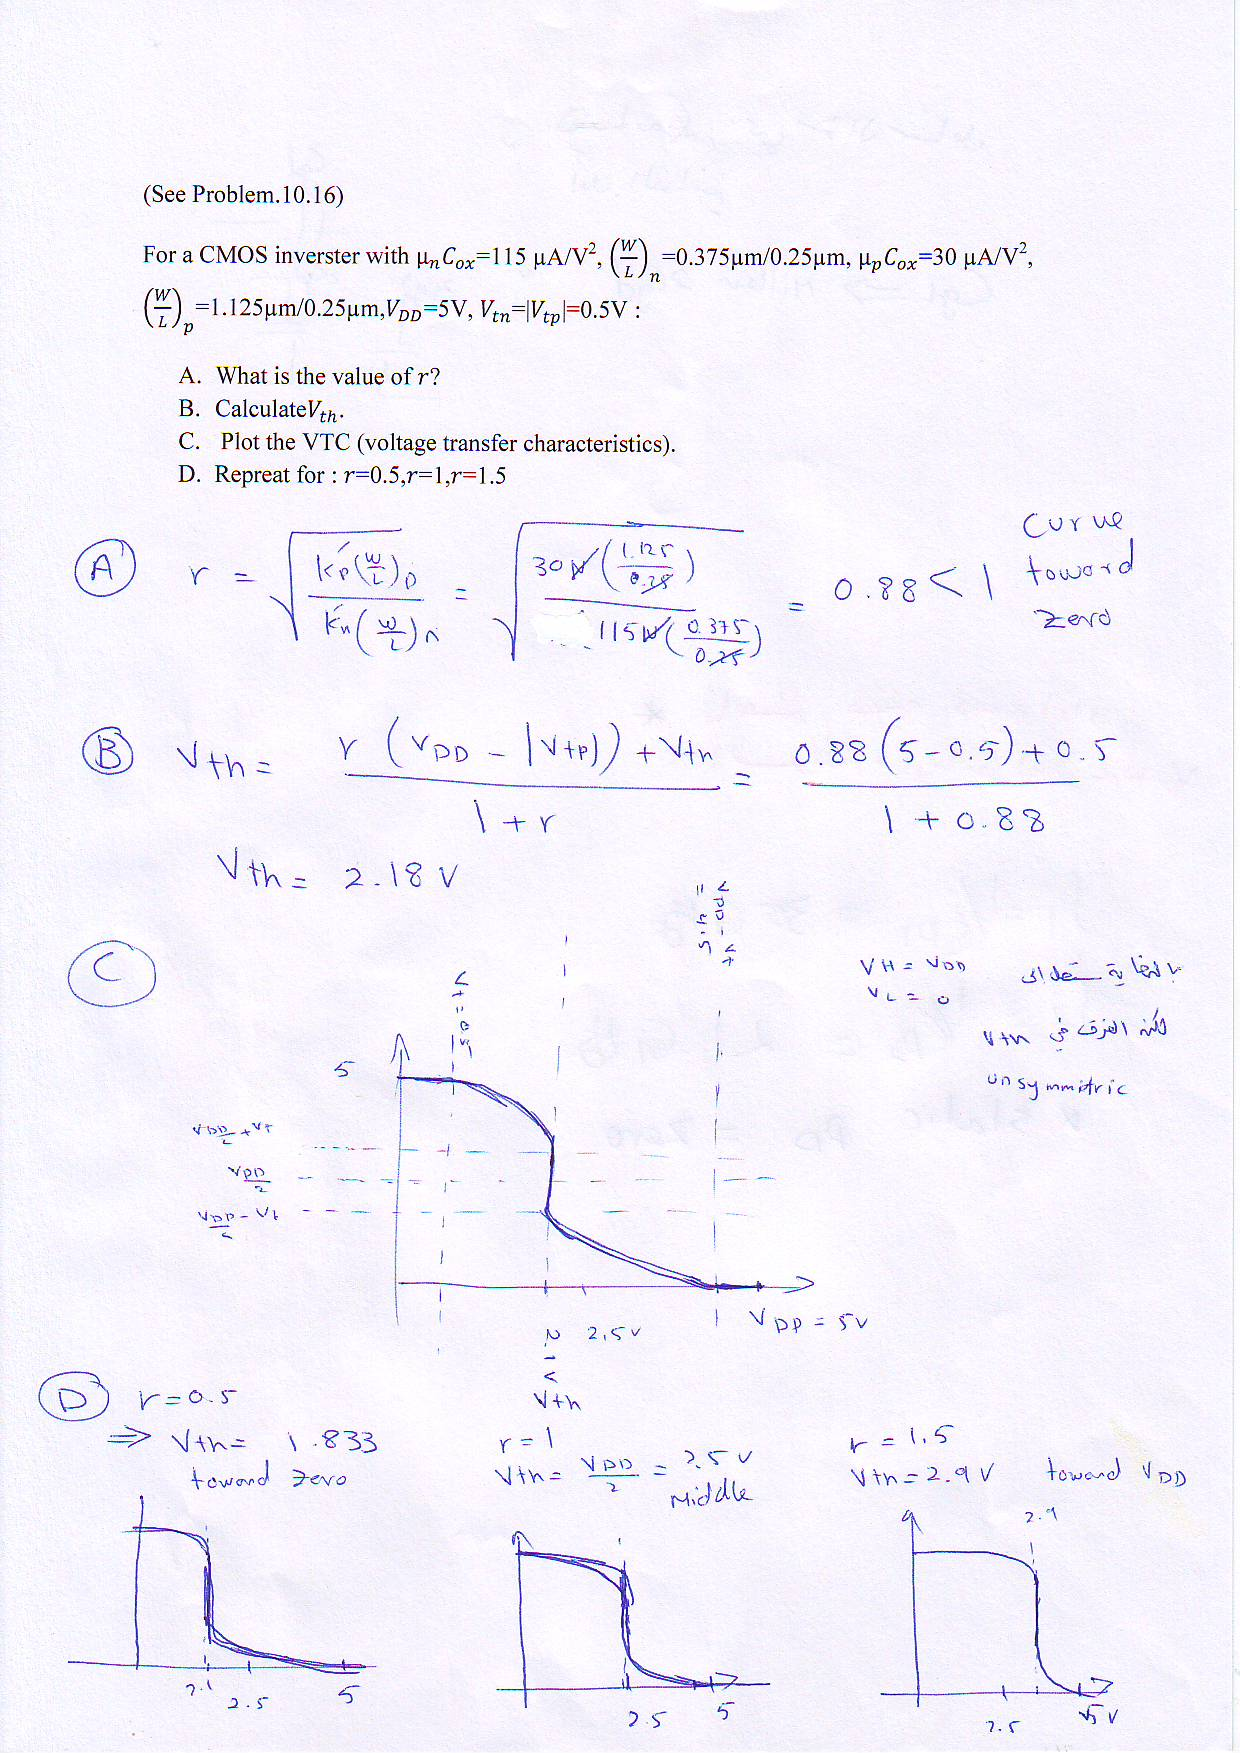 (See Problem.10.16)
For a CMOS inverster with μnCox=115 μA/V², (W/L)n=0.375μm/0.25μm, μpCox=30 μA/V²,
(W/L)p=1.125μm/0.25μm,VDD=5V, Vtn=|Vtp|=0.5V :
A. What is the value of r?
B. CalculateVth.
C. Plot the VTC (voltage transfer characteristics).
D. Repreat for : r=0.5,r=1,r=1.5
A r = √(K'p(W/L)p / K'n(W/L)n) = √(30μ(1.125/0.25) / 115μ(0.375/0.25)) = 0.88 < 1 Curve toward zero
B Vth = (r (VDD - |Vtp|) + Vtn) / (1 + r) = (0.88 (5-0.5) + 0.5) / (1 + 0.88)
Vth = 2.18 V
C
VH = VDD
VL = 0
Vth في الفرق
unsymmitric
Vt = 0.5
VDD - Vt = 4.5
5
VDD/2 + Vt
VDD/2
VDD/2 - Vt
2.5 V
VDD = 5V
Vth
D r = 0.5
⇒ Vth = 1.833
toward zero
2.5 5
r = 1
Vth = VDD/2 = 2.5 V
Middle
2.5 5
r = 1.5
Vth = 2.9 V toward VDD
2.9
2.5 5 V